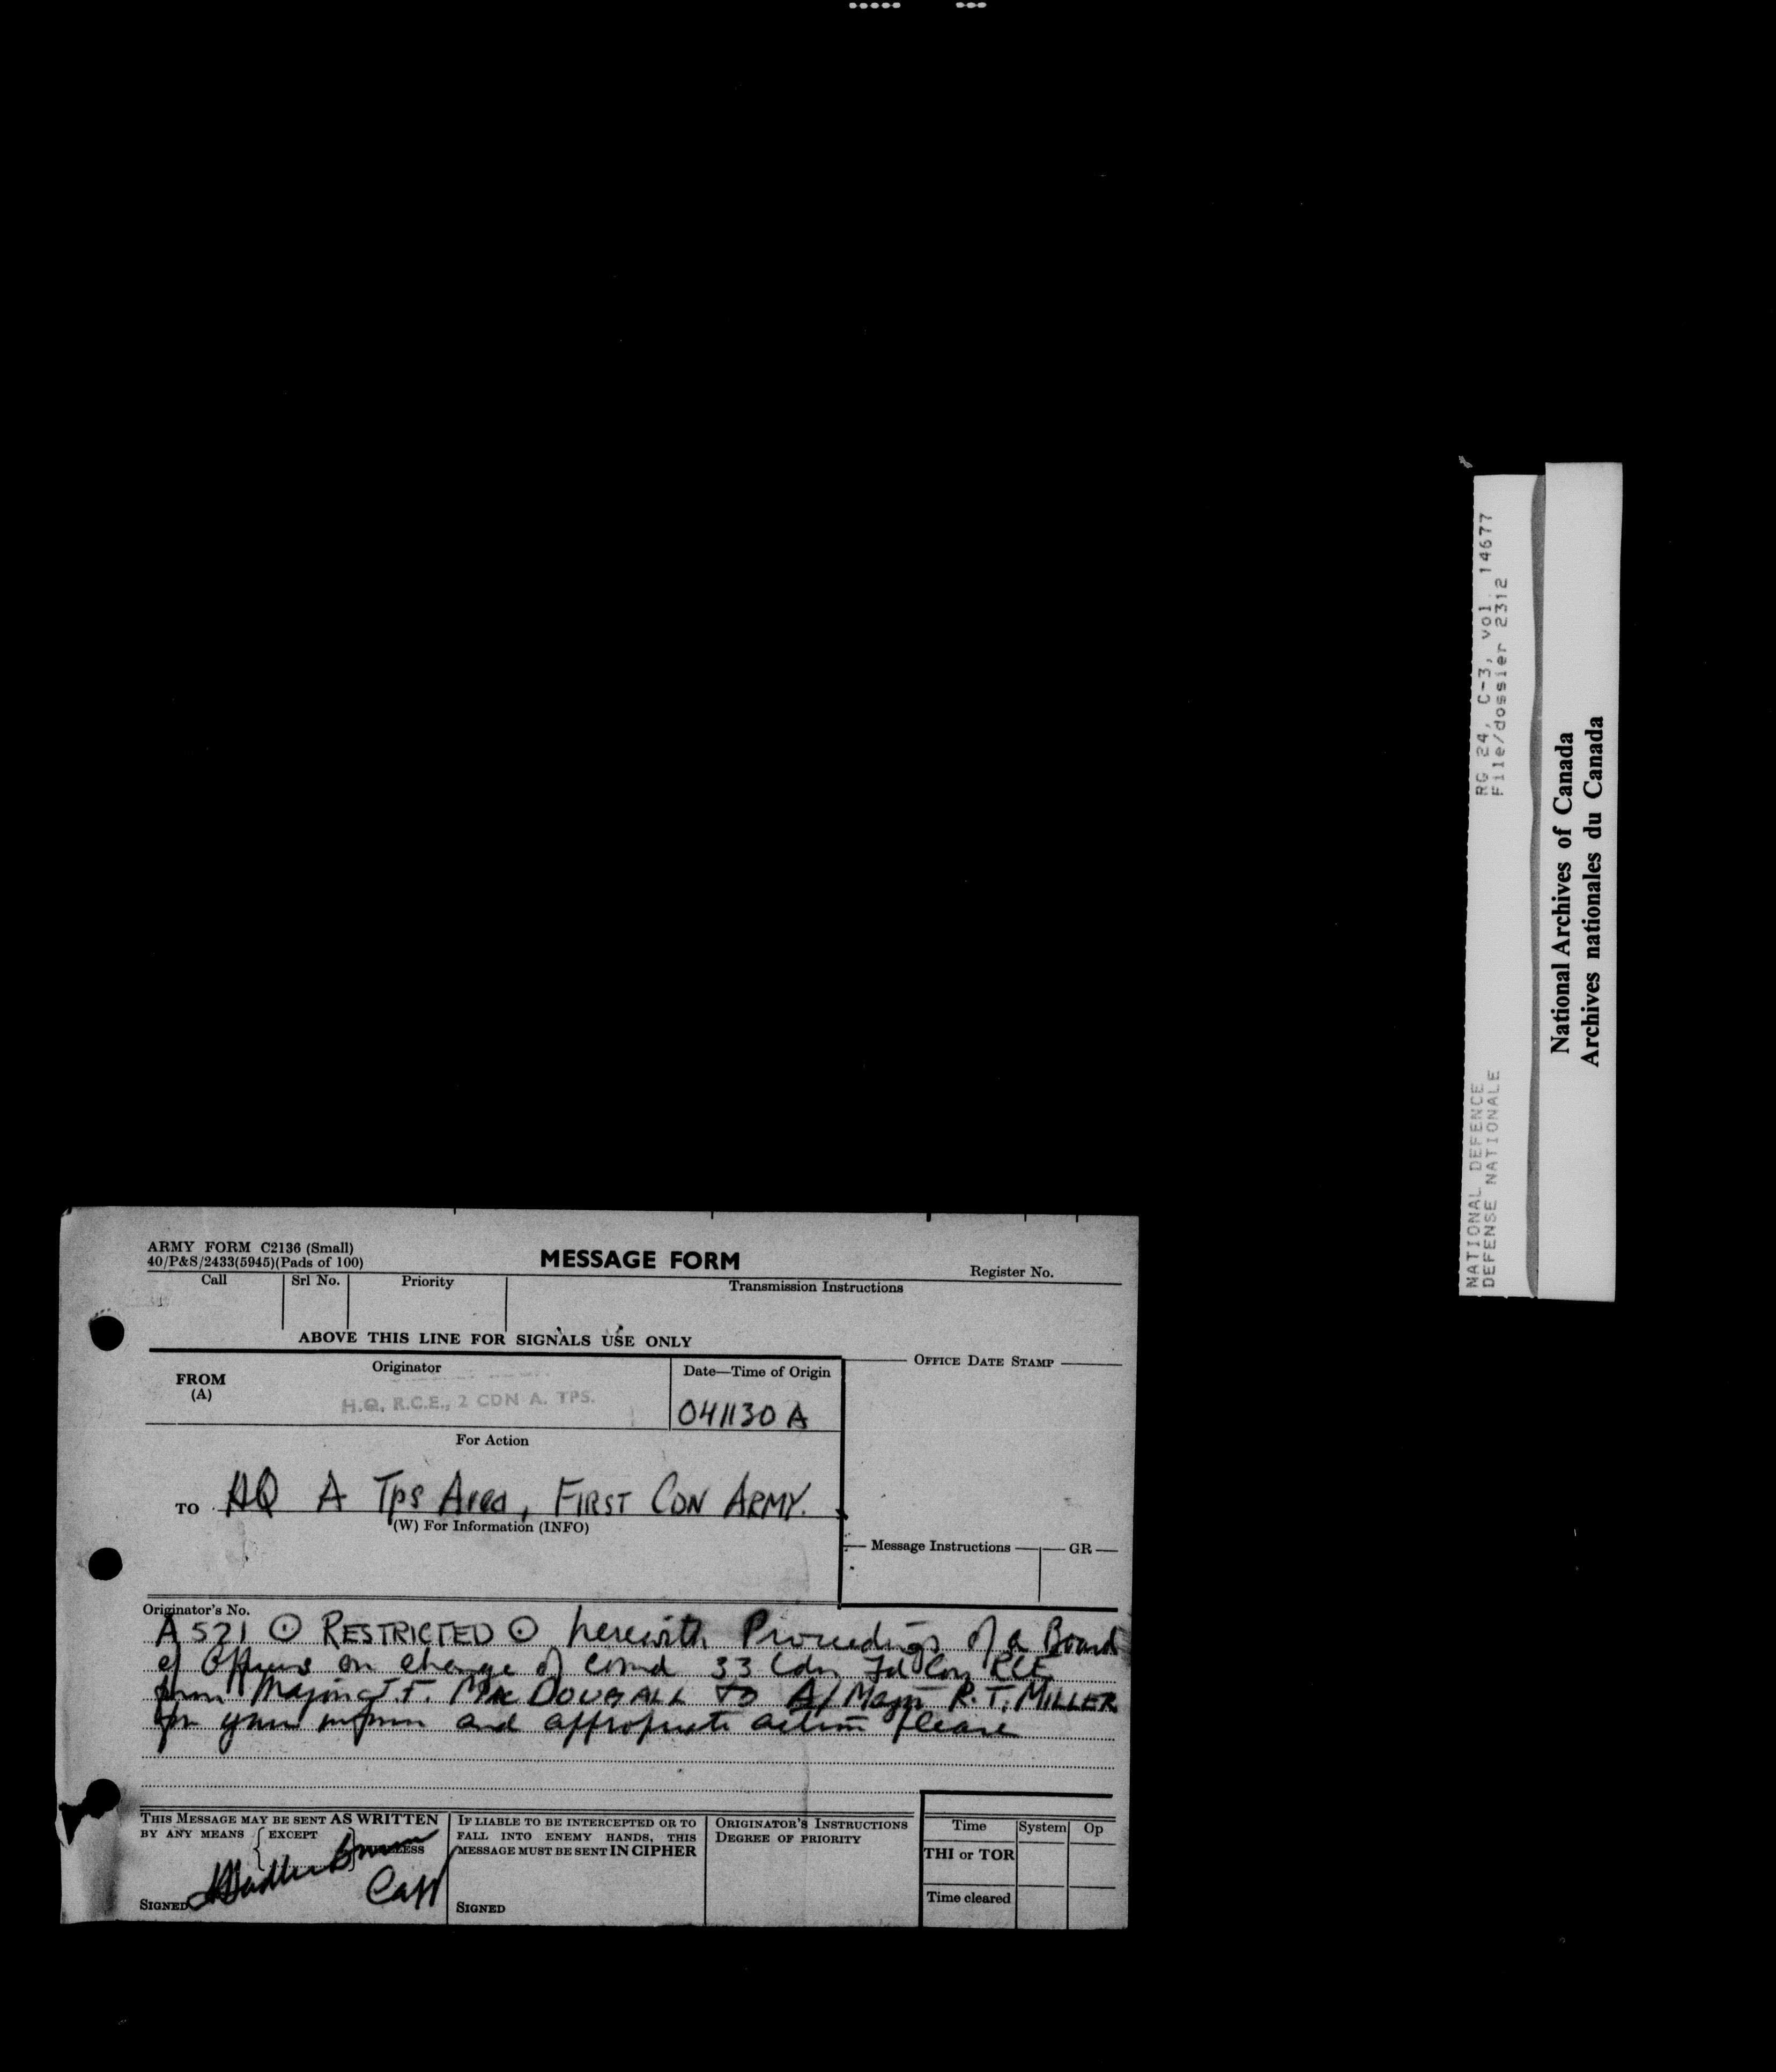 ARMY FORM C2136 (Small)
40/P&S/2433(5945)(Pads of 100)
MESSAGE FORM
Register No.
Call
Srl No.
Priority
Transmission Instructions
ABOVE THIS LINE FOR SIGNALS USE ONLY
FROM
(A)
Originator
H.Q. R.C.E., 2 CDN A. TPS.
Date—Time of Origin
041130 A
OFFICE DATE STAMP
For Action
TO HQ A Tps Area, FIRST CDN ARMY.
(W) For Information (INFO)
Message Instructions
GR
Originator's No.
A 521 ⊙ RESTRICTED ⊙ herewith Proceedings of a Board
of Officers on change of comd 33 Cdn Fd Coy RCE
from Major J.F. MacDOUGALL to A/Major R.T. MILLER
for your inform and appropriate action please
THIS MESSAGE MAY BE SENT AS WRITTEN
BY ANY MEANS EXCEPT
SIGNED
Capt
IF LIABLE TO BE INTERCEPTED OR TO
FALL INTO ENEMY HANDS, THIS
MESSAGE MUST BE SENT IN CIPHER
SIGNED
ORIGINATOR'S INSTRUCTIONS
DEGREE OF PRIORITY
Time
System
Op
THI or TOR
Time cleared
NATIONAL DEFENCE
DEFENSE NATIONALE
RG 24, C-3, vol. 14677
File/dossier 2312
National Archives of Canada
Archives nationales du Canada